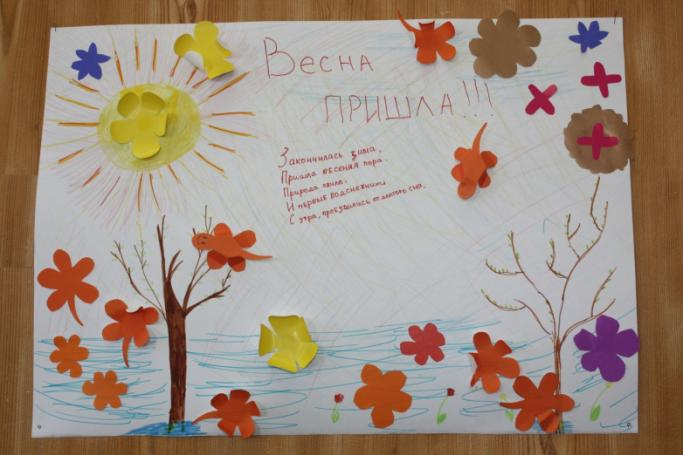 Весна
ПРИШЛА!!!
Закончилась зима,
Пришла весення пора.
Природа
И первые подснежники
С утра, пробудились от долгого сна.